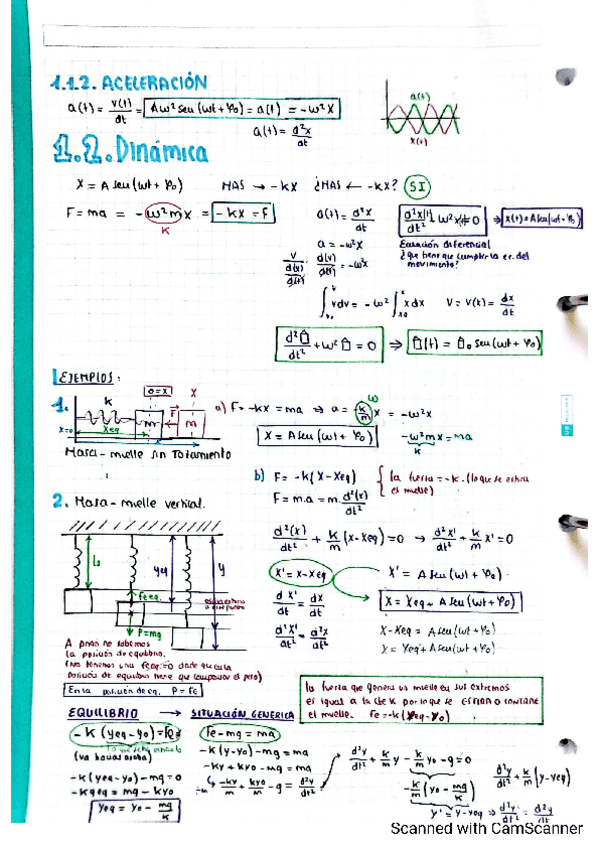 1.1.2. ACELERACIÓN
a(t) = v(t)/dt = Aω² seu(ωt + φ₀) = a(t) = -ω²x
a(t) = d²x/dt
a(t)
x(t)
1.2. Dinámica
X = A seu(ωt + φ₀) MAS → -kx ¿MAS ← -kx? SI
F = ma = -ω²m x = -kx = F
K
a(t) = d²x/dt
d²x(t)/dt² + ω²x(t) = 0 ⇒ x(t) = A seu(ωt + φ₀)
a = -ω²x
Ecuación diferencial
¿que tiene que cumplir la ec. del movimiento?
∫ v dv = -ω² ∫ x dx V = V(x) = dx/dt
d²□/dt² + ω²□ = 0 ⇒ □(t) = □₀ seu(ωt + φ₀)
EJEMPLOS:
1.
K
0=x
x
m
F
m
x=0
xeq
a) F = -kx = ma ⇒ a = -k/m x = -ω²x
ω
X = A seu(ωt + φ₀)
-ω²mx = ma
K
Masa-muelle sin rozamiento
b) F = -k(x - xeq)
la fuerza = -k. (lo que se estira el muelle)
F = m.a = m. d²(x)/dt²
2. Masa-muelle vertical.
d²(x)/dt² + k/m (x - xeq) = 0 → d²x'/dt² + k/m x' = 0
l₀
yeq
y
Feq.
P=mg
x' = x - xeq
x' = A seu(ωt + φ₀)
dx'/dt = dx/dt
x = xeq + A seu(ωt + φ₀)
d²x'/dt² = d²x/dt
x - xeq = A seu(ωt + φ₀)
A priori no sabemos
la posición de equilibrio.
(No tenemos una Feq=0 donde en cada
posición de equilibrio tiene que compensar el peso)
En la posición de eq. P = Fe
la fuerza que genera un muelle en sus extremos
es igual a la cte k por lo que se ESTIRA O CONTRAE
el muelle. Fe = -k(yeq - y₀)
EQUILIBRIO → SITUACIÓN GENERICA
-k(yeq - y₀) = Fe
(va hacia arriba)
Fe - mg = ma
-k(yeq - y₀) - mg = 0
-kyeq = mg - ky₀
yeq = y₀ - mg/k
-k(y - y₀) - mg = ma
-ky + ky₀ - mg = ma
-ky/m + ky₀/m - g = d²y/dt²
d²y/dt² + k/m y - k/m y₀ - g = 0
-k/m (y₀ - mg/k)
d²y/dt² + k/m (y - yeq)
y' = y - yeq ⇒ d²y'/dt² = d²y/dt
Scanned with CamScanner